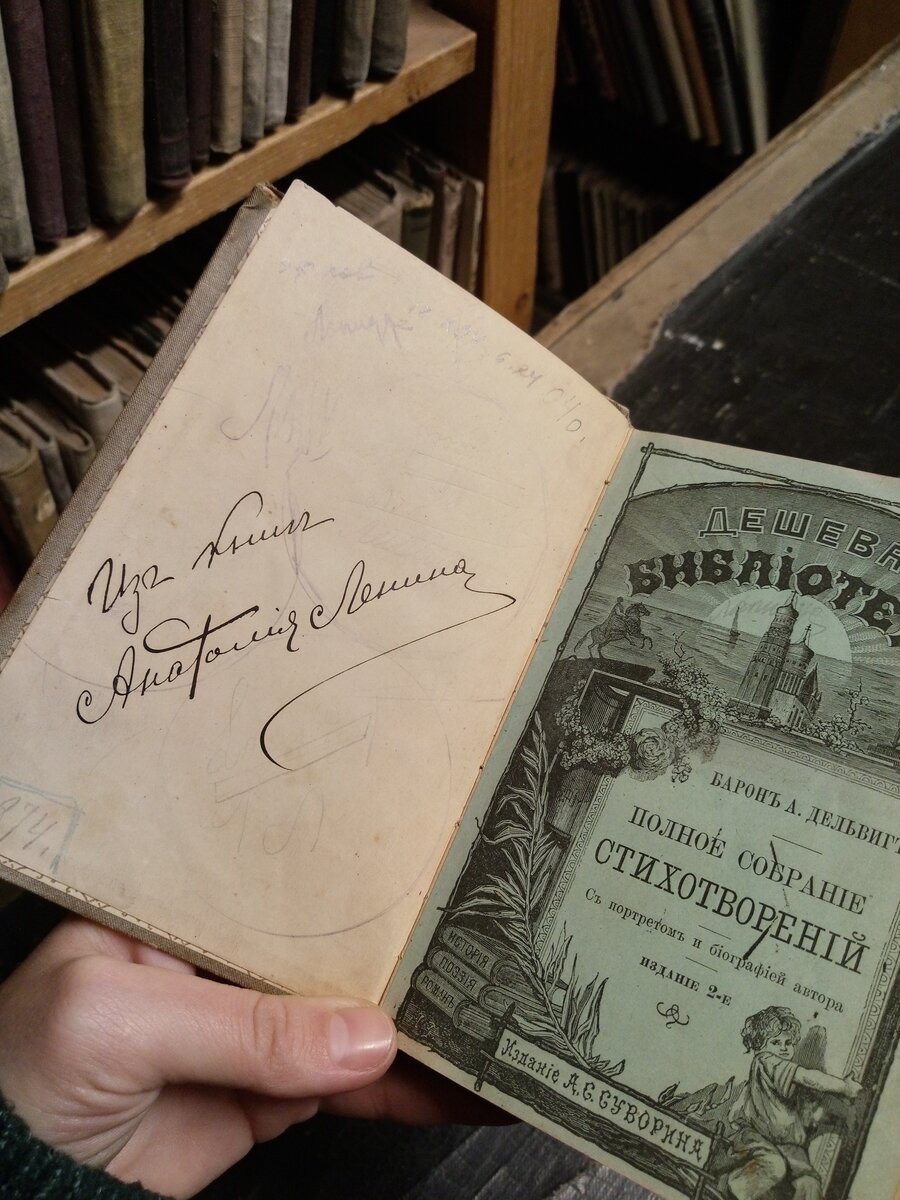 Изъ книгъ
Анатолія Ленина
ДЕШЕВА
БИБЛІОТЕ
БАРОНЪ А. ДЕЛЬВИГЪ
ПОЛНОЕ СОБРАНІЕ
СТИХОТВОРЕНІЙ
Съ портретомъ и біографіей автора
ИЗДАНІЕ 2-Е
ИСТОРІЯ
ПОЭЗІЯ
РОМАНЪ
Изданіе А.С.СУВОРИНА